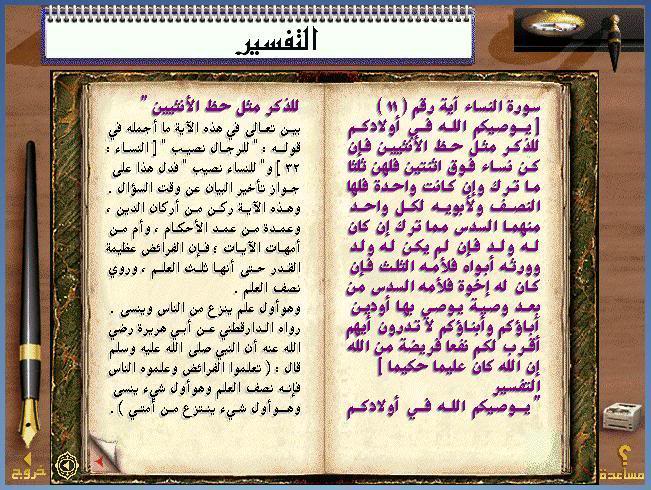 التفسير
سورة النساء آية رقم ( ١١ )
[ يـوصيكم اللـه فـي أولادكـم
للذكر مثـل حـظ الأنثيين فإن
كـن نساء فوق اثنتين فلهن ثلثا
ما تـرك وإن كـانت واحدة فلها
النصف ولأبويـه لكـل واحـد
منهمـا السدس مما ترك إن كان
لـه ولـد فـإن لم يكـن لـه ولد
وورثـه أبواه فلأمـه الثلث فـإن
كان له إخوة فلأمه السدس من
بعـد وصيـة يـوصـي بها أودين
آباؤكم وأبناؤكم لا تدرون أيهم
أقـرب لكم نفعا فريضة من الله
إن الله كان عليما حكيما ]
التفسير
" يـوصيكم اللـه فـي أولادكـم
للذكر مثل حظ الأنثيين "
بيـن تعـالى في هذه الآية ما أجمله في
قولـه : " للرجال نصيب " [ النساء :
٣٢ ] و" للنساء نصيب " فدل هذا على
جـواز تـأخير البيان عن وقت السؤال .
وهـذه الآيـة ركـن مـن أركان الدين ،
وعمـدة مـن عمـد الأحكـام ، وأم مـن
أمهات الآيـات ؛ فـإن الفرائض عظيمة
القدر حتـى أنهـا ثلـث العلـم ، وروي
نصف العلم .
وهوأول علم ينزع من الناس وينسى .
رواه الـدارقطني عـن أبـي هريرة رضي
الله عنه أن النبي صلى الله عليه وسلم
قال : ( تعلموا الفرائض وعلموه الناس
فإنـه نصف العلم وهوأول شيء ينسى
وهـوأول شـيء ينـتزع مـن أمتي ) .
خروج
مساعدة